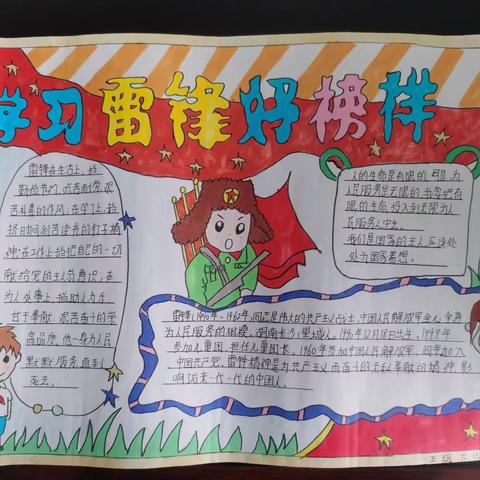 学习雷锋好榜样
雷锋在生活上,提
勤俭节约,吃苦耐劳,艰
苦朴素的作风,在学习上,提
挤时间刻苦读书的钉子精
神,在工作上,提把自己的一切
献给党的主人翁意识,在
为人处事上,提助人为乐
甘于奉献,艰苦奋斗的崇
高品德,他一身为人民
默默服务直到
死去。
人的生命是有限的,可是,为
人民服务是无限的,我要把有
限的生命,投入到无限为人
民服务之中去。
我们是国家的主人,应该处
处为国家着想。
雷锋(1940年-1962年)同志是伟大的共产主义战士,中国人民解放军全心全意
为人民服务的楷模,湖南长沙望城人,1940年12月18日出生,1949年
参加儿童团,担任儿童团长,1960年参加中国人民解放军,同年加入
中国共产党,雷锋精神是为共产主义而奋斗的无私奉献的精神,影
响了后来一代一代的中国人。